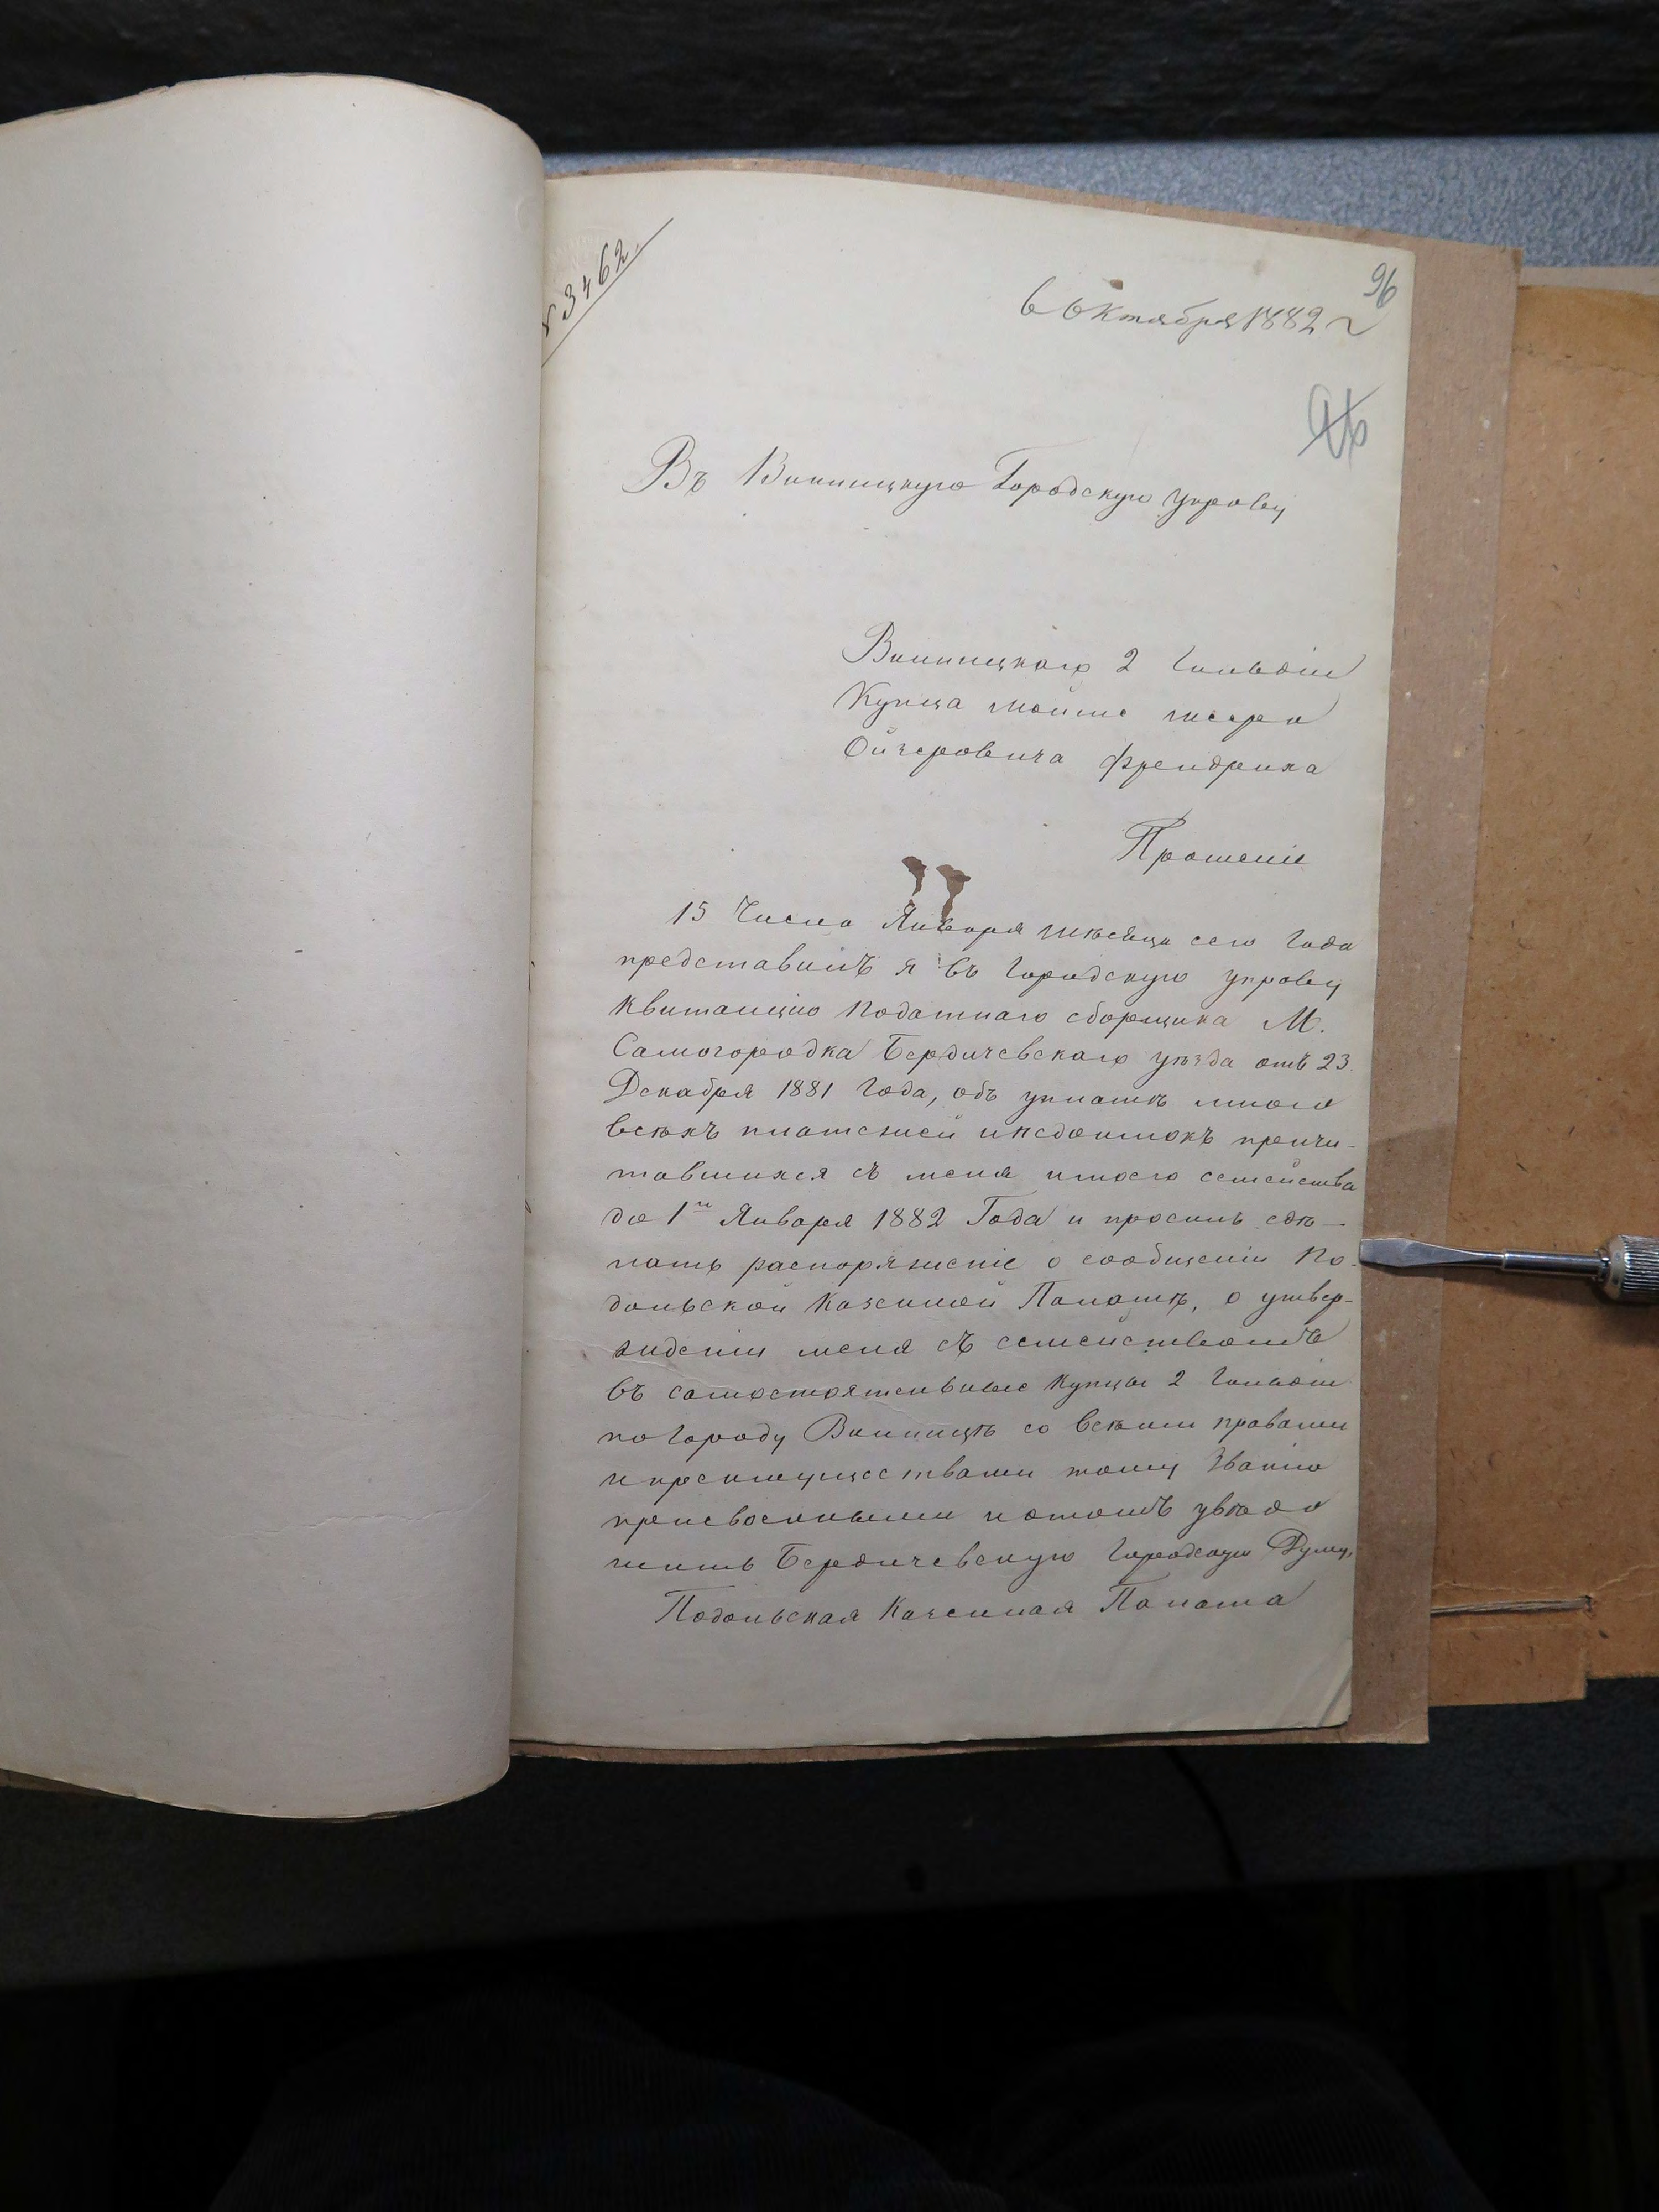 № 3462
96
6 Октября 1882 г
96
Въ Винницкую Городскую Управу
Винницкаго 2 Гильдіи
Купца Мошка
Ойзеровича
Прошеніе
15 Числа Января мѣсяца сего Года
представилъ я въ Городскую управу
Квитанцію Податнаго сборщика М.
Самогородка Бердичевскаго уѣзда отъ 23
Декабря 1881 Года, объ уплатѣ мною
всѣхъ платежей и недоимокъ причи-
тавшихся съ меня и моего семейства
до 1го Января 1882 Года и просилъ сдѣ-
лать распоряженіе о сообщеніи По-
дольской Казенной Палатѣ, о утвер-
жденіи меня съ семействомъ
въ самостоятельные Купцы 2 Гильдіи
по Городу Винницѣ со всѣми правами
и преимуществами тому Званію
присвоенными и о томъ увѣдо
мить Бердичевскую Городскую Думу,
Подольская Казенная Палата